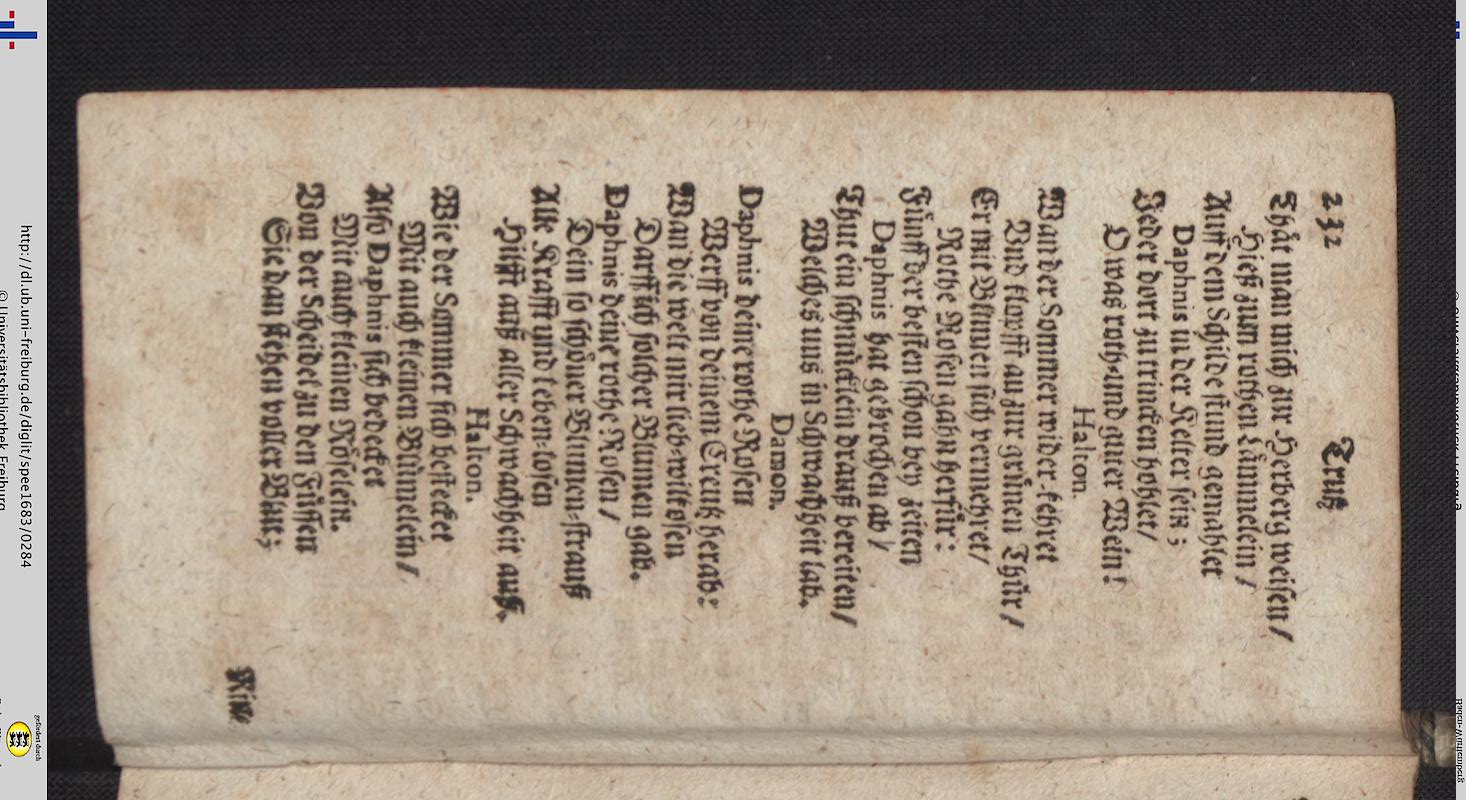 232
Trutz
Thåt man mich zur Herberg weisen/
Hieß zum rothen Låmmelein/
Auff dem Schilde stund gemahlet
Daphnis in der Kelter sein;
Jeder dort zu trincken hohlet/
O was roth-und guter Wein!
Halton.
Wan der Sommer wider-kehret
Vnd klopfft an zur grůnen Thůr/
Er mit Blumen sich vermehret/
Rothe Rosen gahn herfůr:
Fůnff der besten schon bey zeiten
Daphnis hat gebrochen ab/
Thut ein schmucklein drauß bereiten/
Welches uns in Schwachheit lab.
Damon.
Daphnis deine rothe Rosen
Werff von deinem Creutz herab:
Wan die welt mir lieb-wilkosen
Darff ich solcher Blumen gab.
Daphnis deine rothe Rosen/
Dein so schôner Blumen-strauß
Alle Krafft und leben-losen
Hilfft auß aller Schwachheit auß.
Halton.
Wie der Sommer sich bestecket
Mit auch kleinen Blůmelein/
Also Daphnis sich bedecket
Mit auch kleinen Rôselein.
Von der Scheidel zu den Fůssen
Sie dan stehen voller Blut;
http://dl.ub.uni-freiburg.de/diglit/spee1683/0284
© Universitätsbibliothek Freiburg
gefördert durch